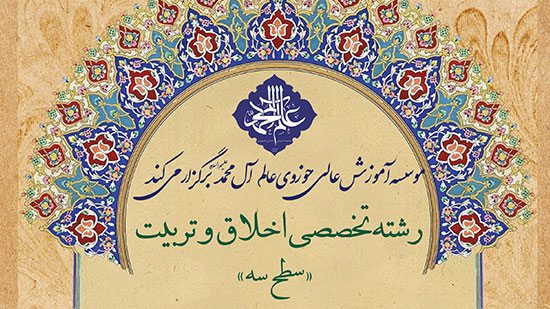 عالم آل محمد
موسسه آموزش عالی حوزوی عالم آل محمد علیهم السلام برگزار می کند
رشته تخصصی اخلاق و تربیت
«سطح سه»